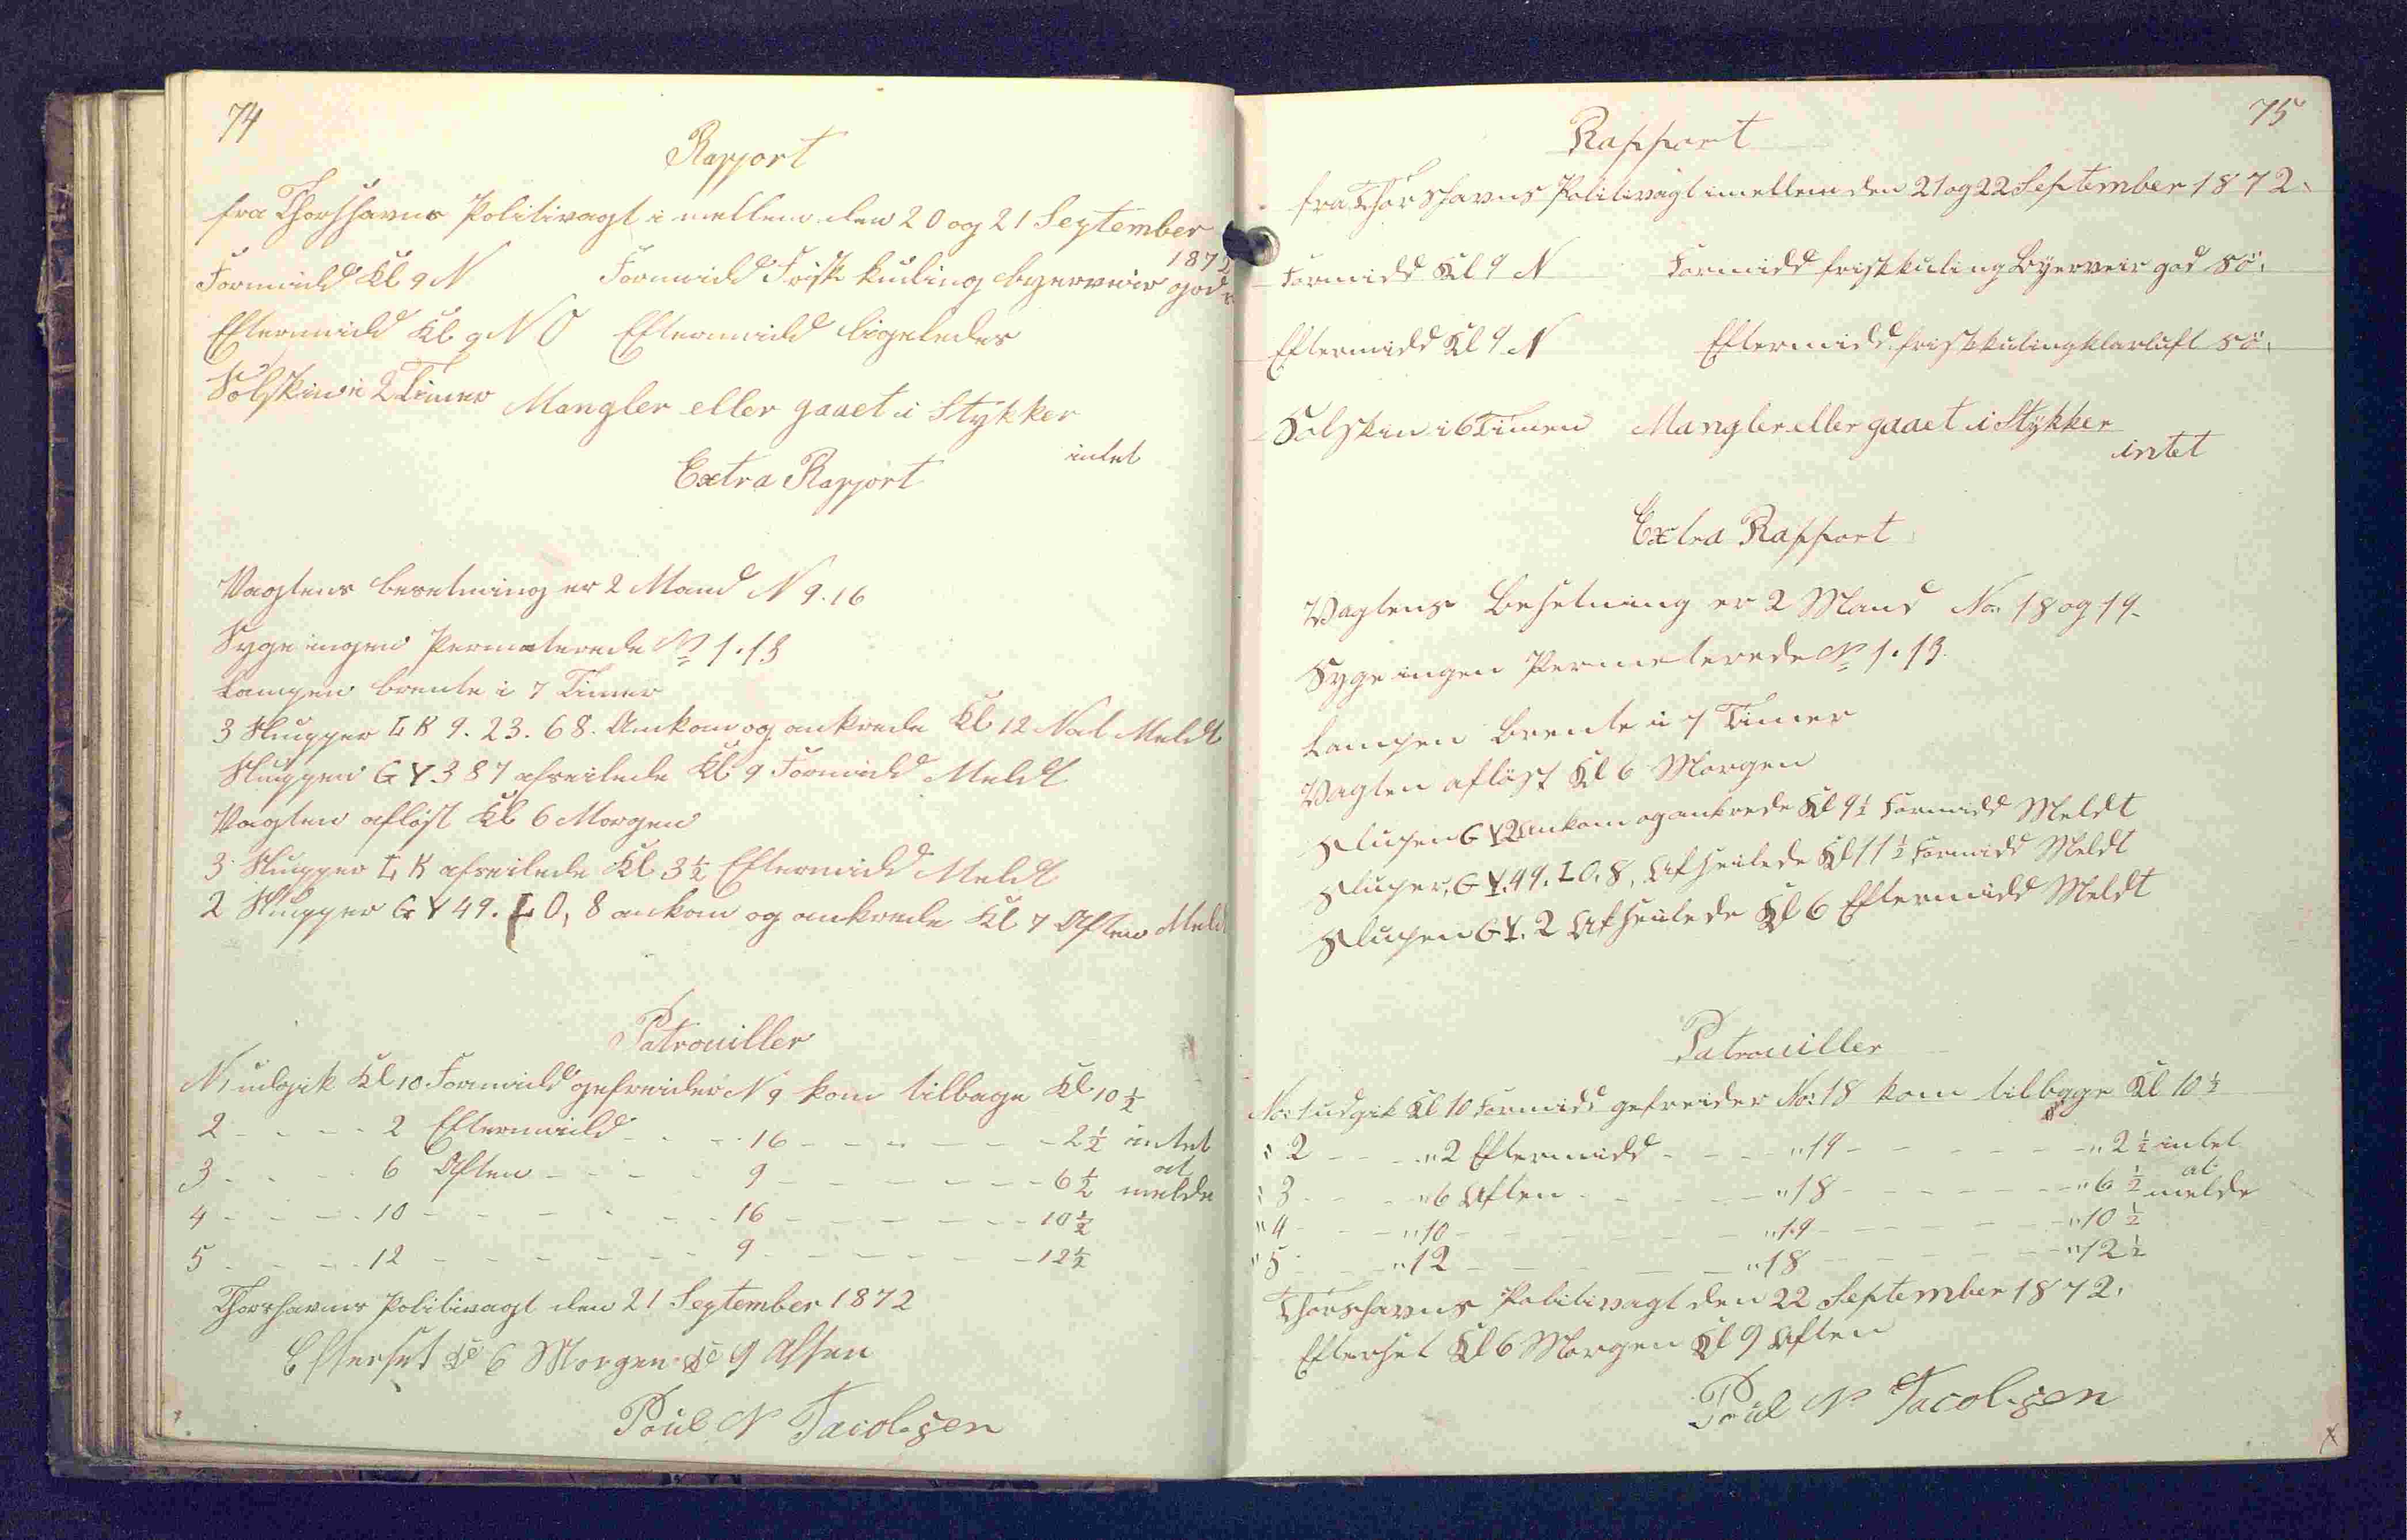 74
Rapport
fra Thorshavns Politivagt i mellem den 20 og 21 September
1872
Formidd Kl 9 N Formidd Frisk kuling byerveir god
Eftermidd Kl 9 N O Eftermidd ligeledes
Solskin i 2 Timer Mangler eller gaaet i Stykker
intet
Extra Rapport
Vagtens besetning er 2 Mand N 9. 16
Syge ingen Permeterede No 1. 13
Lampen brente i 7 Timer
3 Slupper LK 9. 23. 68. Ankom og ankrede Kl 12 Nat Meldt
Sluppen GY 387 afseilede Kl 9 Formidd Meldt
Vagten afløst Kl 6 Morgen
3 Slupper LK afseilede Kl 3½ Eftermidd Meldt
2 Slupper GY 49. LO, 8 ankom og ankrede Kl 7 Aften Meldt
Patrouiller
N 1 udgik Kl 10 Formidd gefreider N 9 kom tilbage Kl 10½
2 - - - - 2 Eftermidd - - - 16 - - - - - - 2½ intet
3 - - - 6 Aften - - - - 9 - - - - - - 6½ at melde
4 - - - - 10 - - - - - - - 16 - - - - - - 10½
5 - - - - 12 - - - - - - - 9 - - - - - - 12½
Thorshavns Politivagt den 21 September 1872
Efterset Kl 6 Morgen Kl 9 Aften
Poul N Jacobsen
75
Rapport
fra Thorshavns Politivagt imellem den 21 og 22 September 1872.
Formidd Kl 9 N Formidd friskkuling Byerveir god Sö.
Eftermidd Kl 9 N Eftermidd friskkuling klarluft Sö.
Solskin i 6 Timer Mangler eller gaaet i Stykker
intet
Extra Rapport
Vagtens Besetning er 2 Mand No: 18 og 19
Syge ingen Permeterede No 1. 13.
Lampen Brente i 7 Timer
Vagten afløst Kl 6 Morgen
Slupen GY 2 Ankom og ankrede Kl 9½ Formidd Meldt
Sluper, GY. 49. LO. 8, Afseilede Kl 11½ Formidd Meldt
Slupen GY. 2 Afseilede Kl 6 Eftermidd Meldt
Patrouiller
No: 1 udgik Kl 10 Formidd gefreider No: 18 kom tilbage Kl 10½
" 2 - - - " 2 Eftermidd - - - - " 19 - - - - - - " 2½ intet
" 3 - - - " 6 Aften - - - - " 18 - - - - - - " 6½ at melde
" 4 - - - " 10 - - - - - - " 19 - - - - - - " 10½
" 5 - - - " 12 - - - - - - " 18 - - - - - - " 12½
Thorshavns Politivagt den 22 September 1872.
Efterset Kl 6 Morgen Kl 9 Aften
Poul N Jacobsen